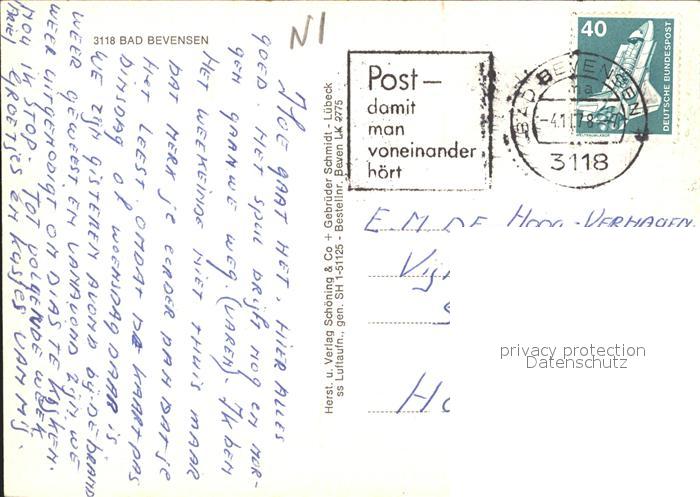 3118 BAD BEVENSEN
N1
HOE GAAT HET. HIER ALLES
GOED. HET SPUL DRIJFT NOG EN MOR-
GEN GAAN WE WEG. (VAREN). IK BEN
HET WEEKEINDE NIET THUIS MAAR
DAT MERK JE EERDER DAN DAT JE
HET LEEST. OMDAT DE KAART PAS
DINSDAG OF WOENSDAG DAAR IS.
WE ZIJN GISTEREN AVOND BIJ DE BRAND
WEER GEWEEST EN VANAVOND ZIJN WE
WEER UITGENODIGT OM DIAS TE KIJKEN.
NOU IK STOP. TOT VOLGENDE WEEK
GROETJES EN KUSJES VAN MIJ.
Herst. u. Verlag Schöning & Co + Gebrüder Schmidt - Lübeck
ss Luftaufn., gen. SH 1-51125 - Bestellnr. Beven LK 2775
Post—
damit
man
voneinander
hört
BAD BEVENSEN
ma
3118
40
DEUTSCHE BUNDESPOST
E. M. DE HOOG-VERHAGEN
privacy protection
Datenschutz